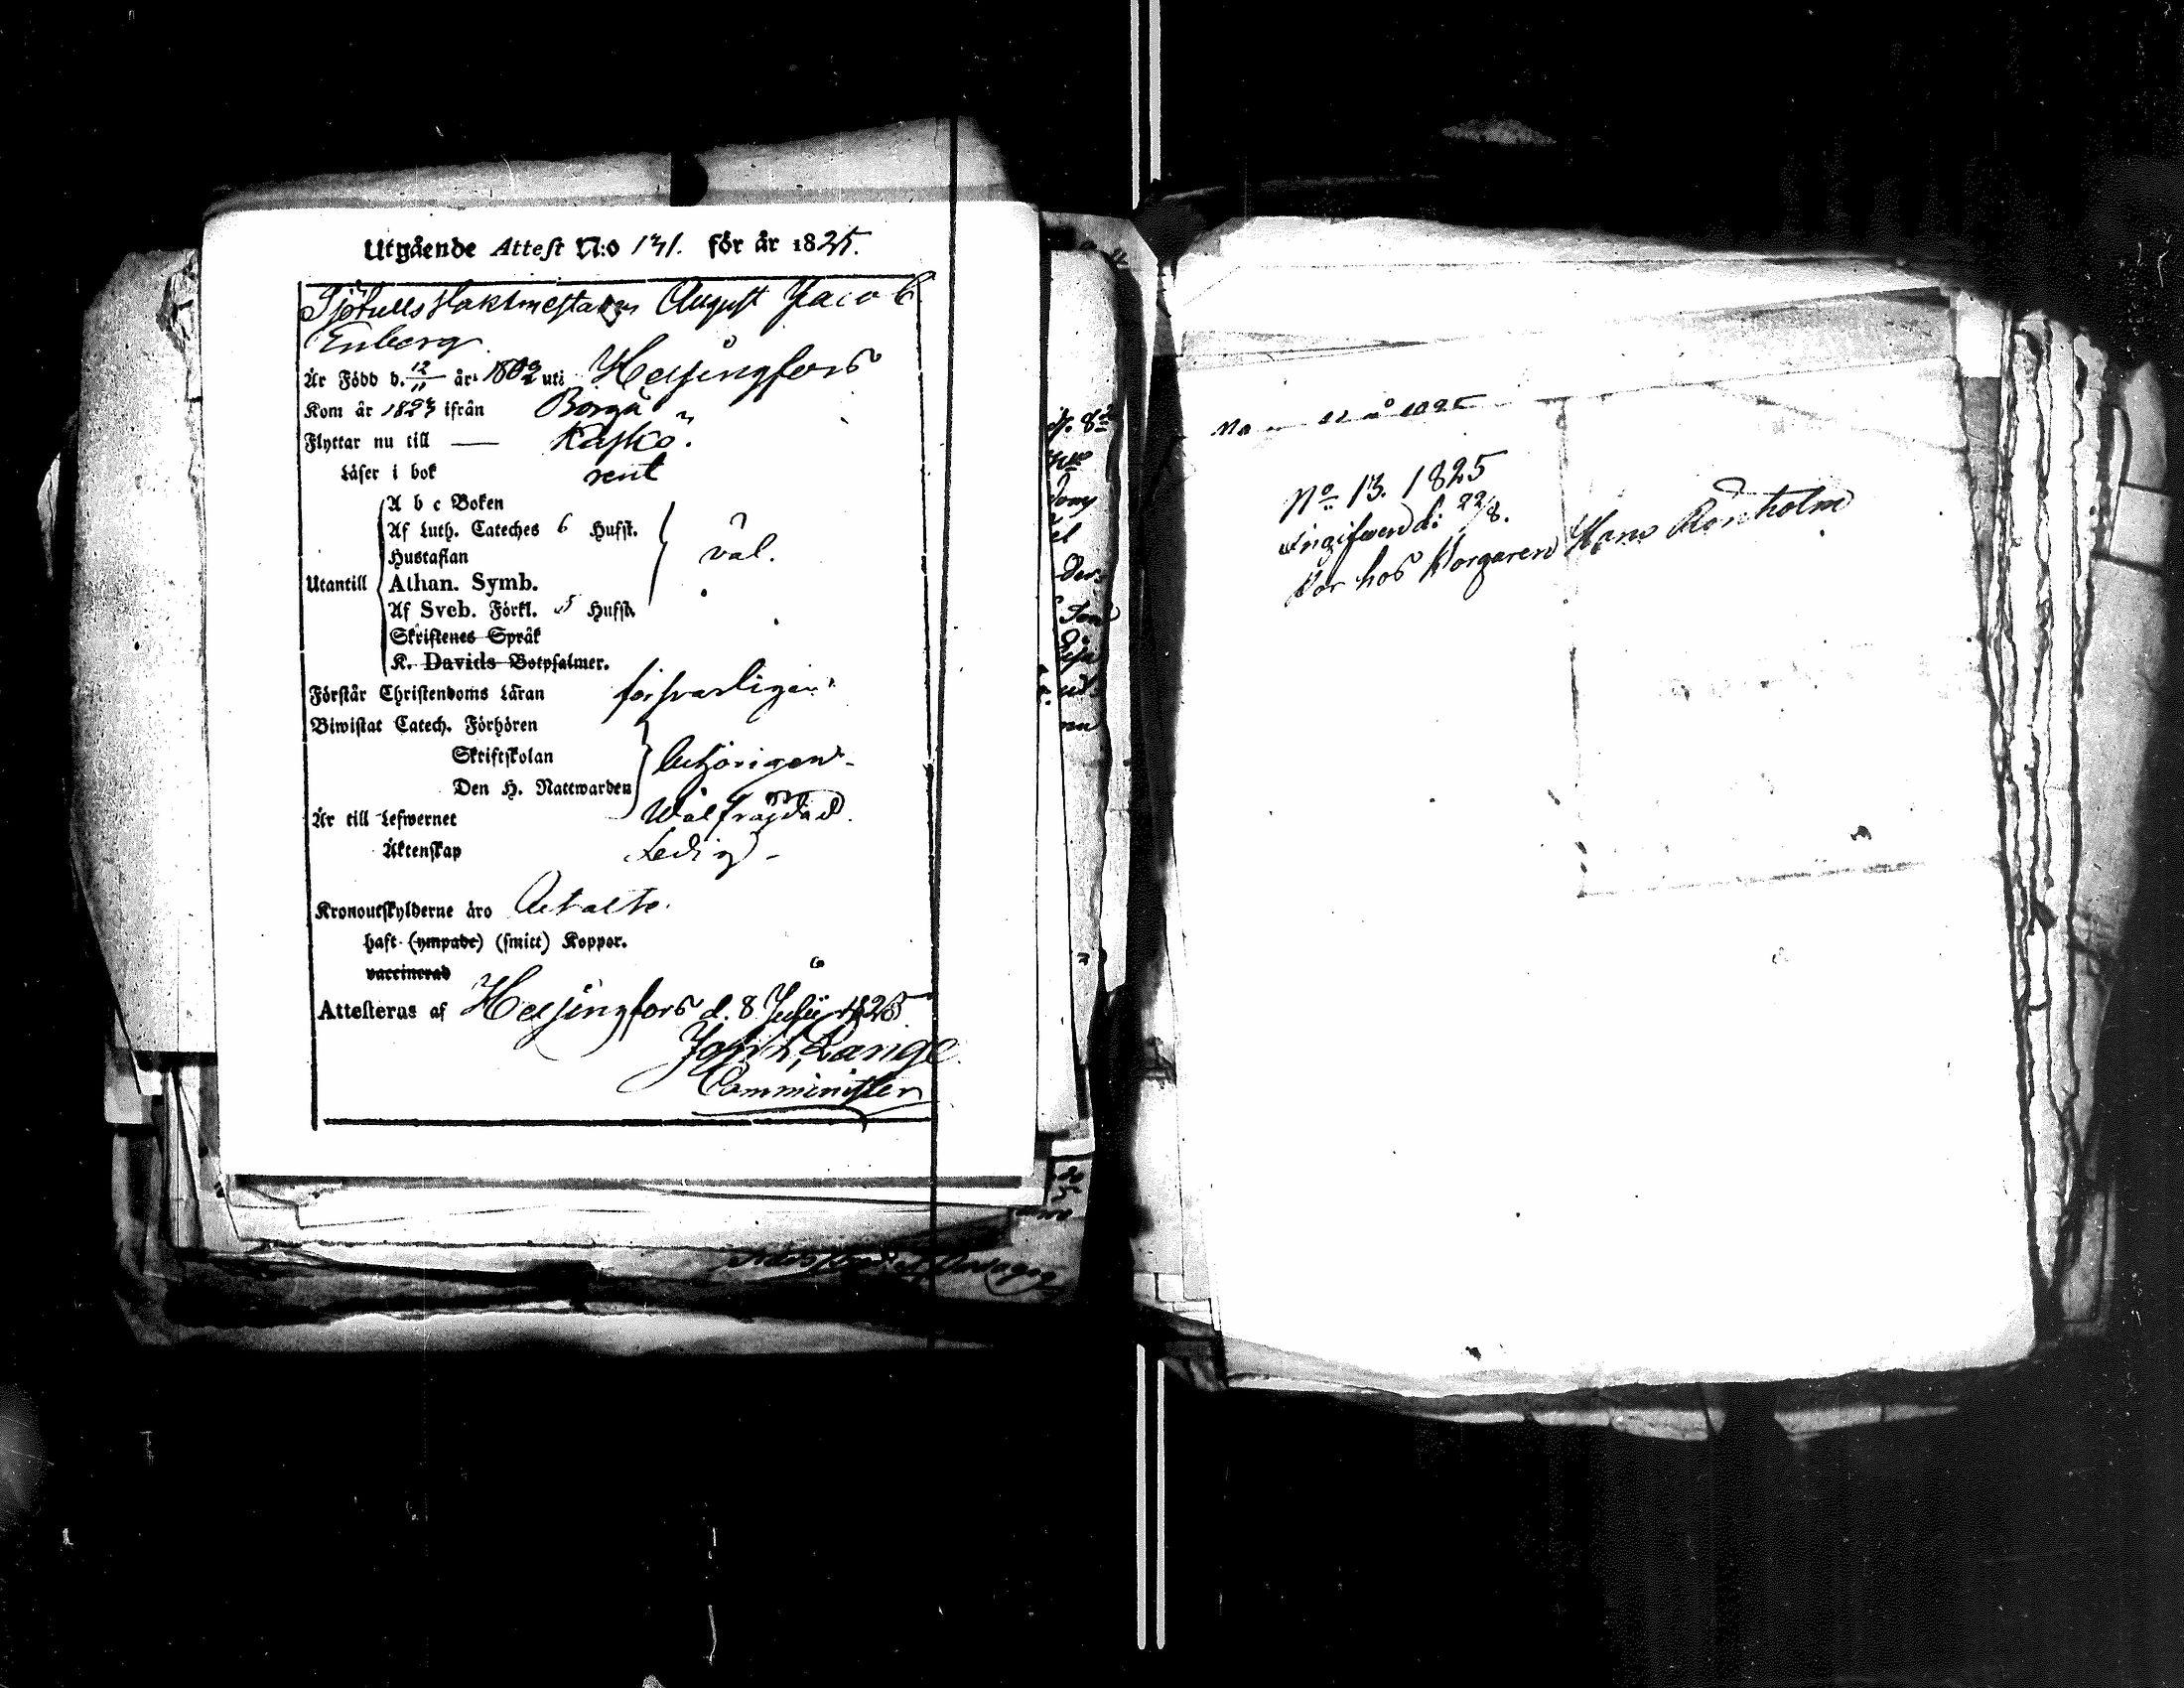 Utgående Attest N:o 131. för år 1825.
Sjötulls Vaktmestaren August Jacob
Enberg
Är Född d. 12/11 år 1802 uti Helsingfors
Kom år 1823 ifrån Borgå
Flyttar nu till — Kaskö.
Läser i bok rent
A b c Boken
Af Luth. Cateches 6 Hufst.
Hustaflan väl.
Utantill Athan. Symb.
Af Sveb. Förkl. 5 Hufst.
Skriftenes Språk
K. Davids Botpsalmer.
Förstår Christendoms Läran försvarligen
Biwistat Catech. Förhören
Skriftskolan behörigen
Den H. Nattwarden
Är till Lefwernet Wälfrägdad.
Äktenskap Ledig
Kronoutskylderne äro Betalte.
haft (ympade) (smitt) Koppor.
vaccinerad
Attesteras af Helsingfors d. 8 Julii 1825
Joh: Lange
Comminister
No 13. 1825
Ingifwen d: 22/8.
Bor hos Borgaren Hans Rönholm